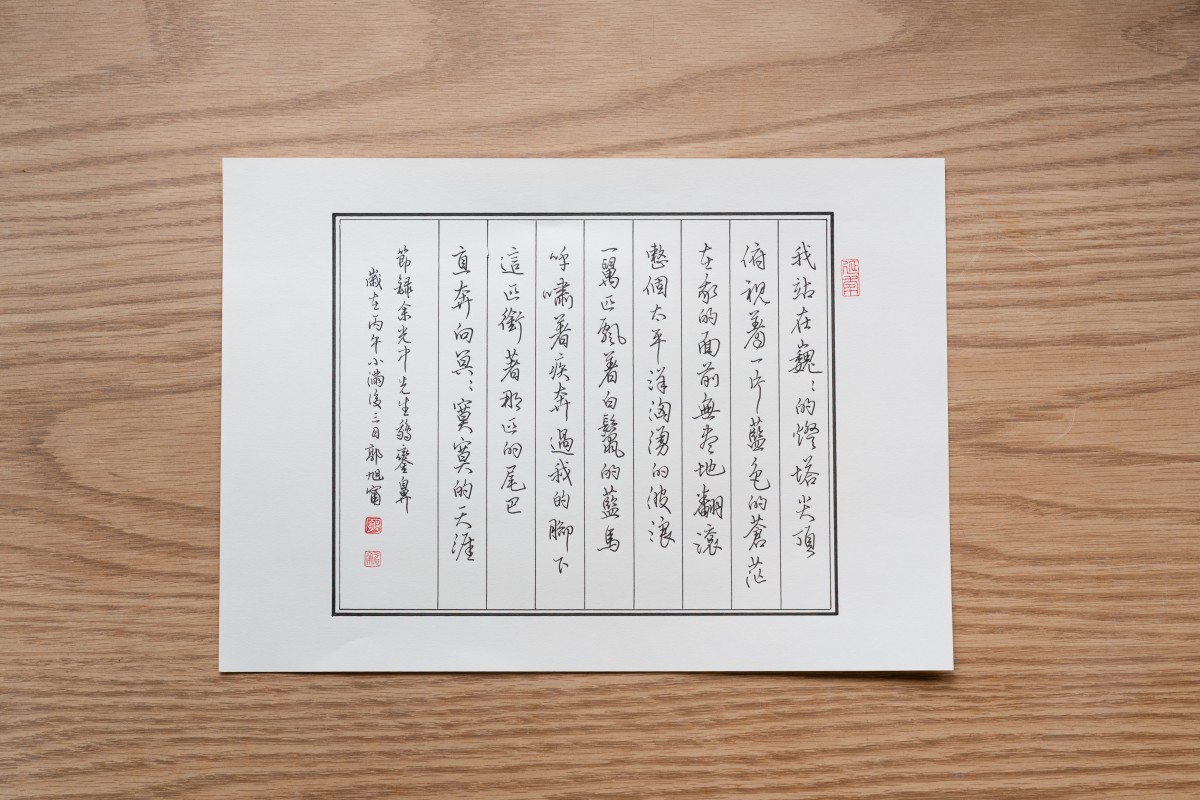 我站在巍〻的燈塔尖頂
俯視著一片藍色的蒼茫
在我的面前無盡地翻滾
整個太平洋洶湧的波浪
一萬匹飄著白鬣的藍馬
呼嘯著疾奔過我的腳下
這匹銜著那匹的尾巴
直奔向冥〻寞寞的天涯
節錄余光中先生鵝鑾鼻
歲在丙午小滿後三日郭旭甯